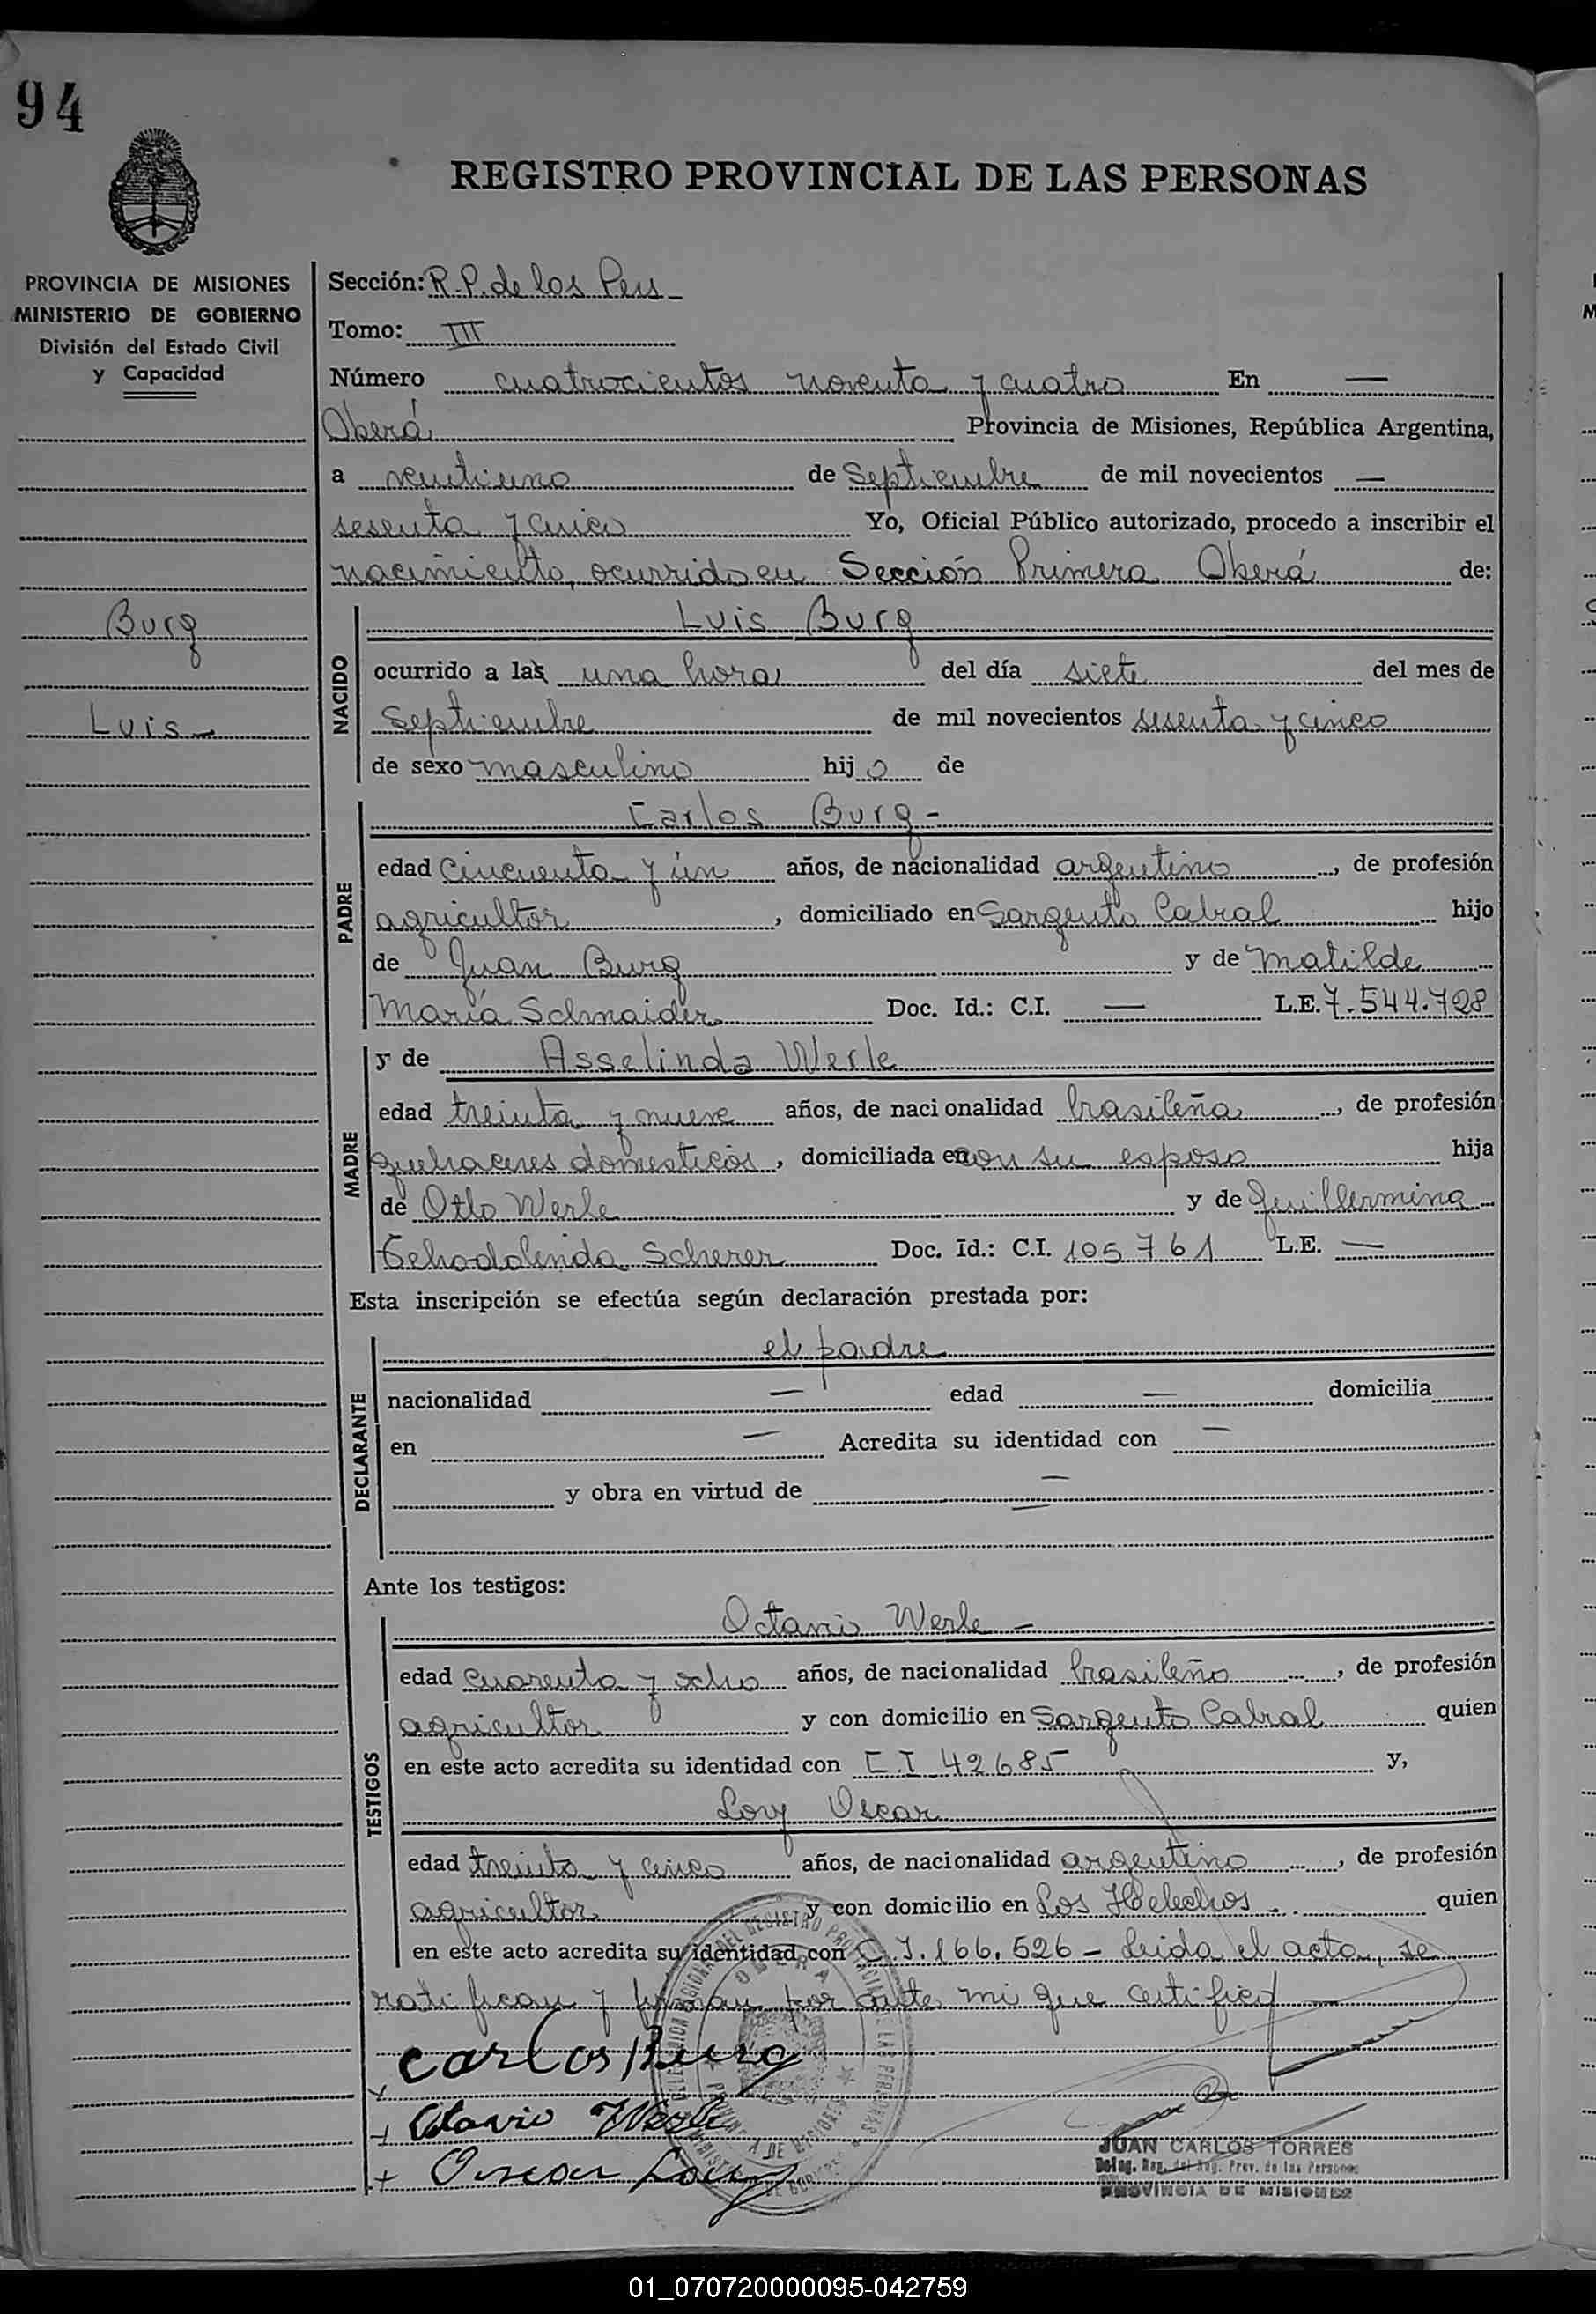 94
REGISTRO PROVINCIAL DE LAS PERSONAS
PROVINCIA DE MISIONES
MINISTERIO DE GOBIERNO
División del Estado Civil
y Capacidad
Burg
Luis -
Sección: R.P. de las Pers -
Tomo: III
Número cuatrocientos noventa y cuatro En —
Oberá Provincia de Misiones, República Argentina,
a veintiuno de Septiembre de mil novecientos —
sesenta y cinco Yo, Oficial Público autorizado, procedo a inscribir el
nacimiento, ocurrido en Sección Primera Oberá de:
NACIDO
Luis Burg
ocurrido a las una hora del día siete del mes de
Septiembre de mil novecientos sesenta y cinco
de sexo masculino hijo de
PADRE
Carlos Burg -
edad cincuenta y ún años, de nacionalidad argentino, de profesión
agricultor, domiciliado en Sargento Cabral hijo
de Juan Burg y de Matilde
María Schnaider Doc. Id.: C.I. — L.E. 7.544.728
MADRE
y de Asselinda Werle
edad treinta y nueve años, de nacionalidad brasileña, de profesión
quehaceres domesticos, domiciliada en con su esposo hija
de Otto Werle y de Guillermina
Scherer Doc. Id.: C.I. 105761 L.E. —
Esta inscripción se efectúa según declaración prestada por:
DECLARANTE
el padre
nacionalidad — edad — domicilia
en — Acredita su identidad con —
y obra en virtud de —
—
Ante los testigos:
TESTIGOS
Octavio Werle -
edad cuarenta y ocho años, de nacionalidad brasileño, de profesión
agricultor y con domicilio en Sargento Cabral quien
en este acto acredita su identidad con C.I. 42685 y,
Lory Oscar
edad treinta y cinco años, de nacionalidad argentino, de profesión
agricultor y con domicilio en Los Helechos - quien
en este acto acredita su identidad con C.I. 166.526 - Leida el acta, se
ratifican y firman por ante mi que certifico
Carlos Burg
Otavio Werle
Oscar Lory
JUAN CARLOS TORRES
Deleg. Reg. del Reg. Prov. de las Personas
PROVINCIA DE MISIONES
01_070720000095-042759